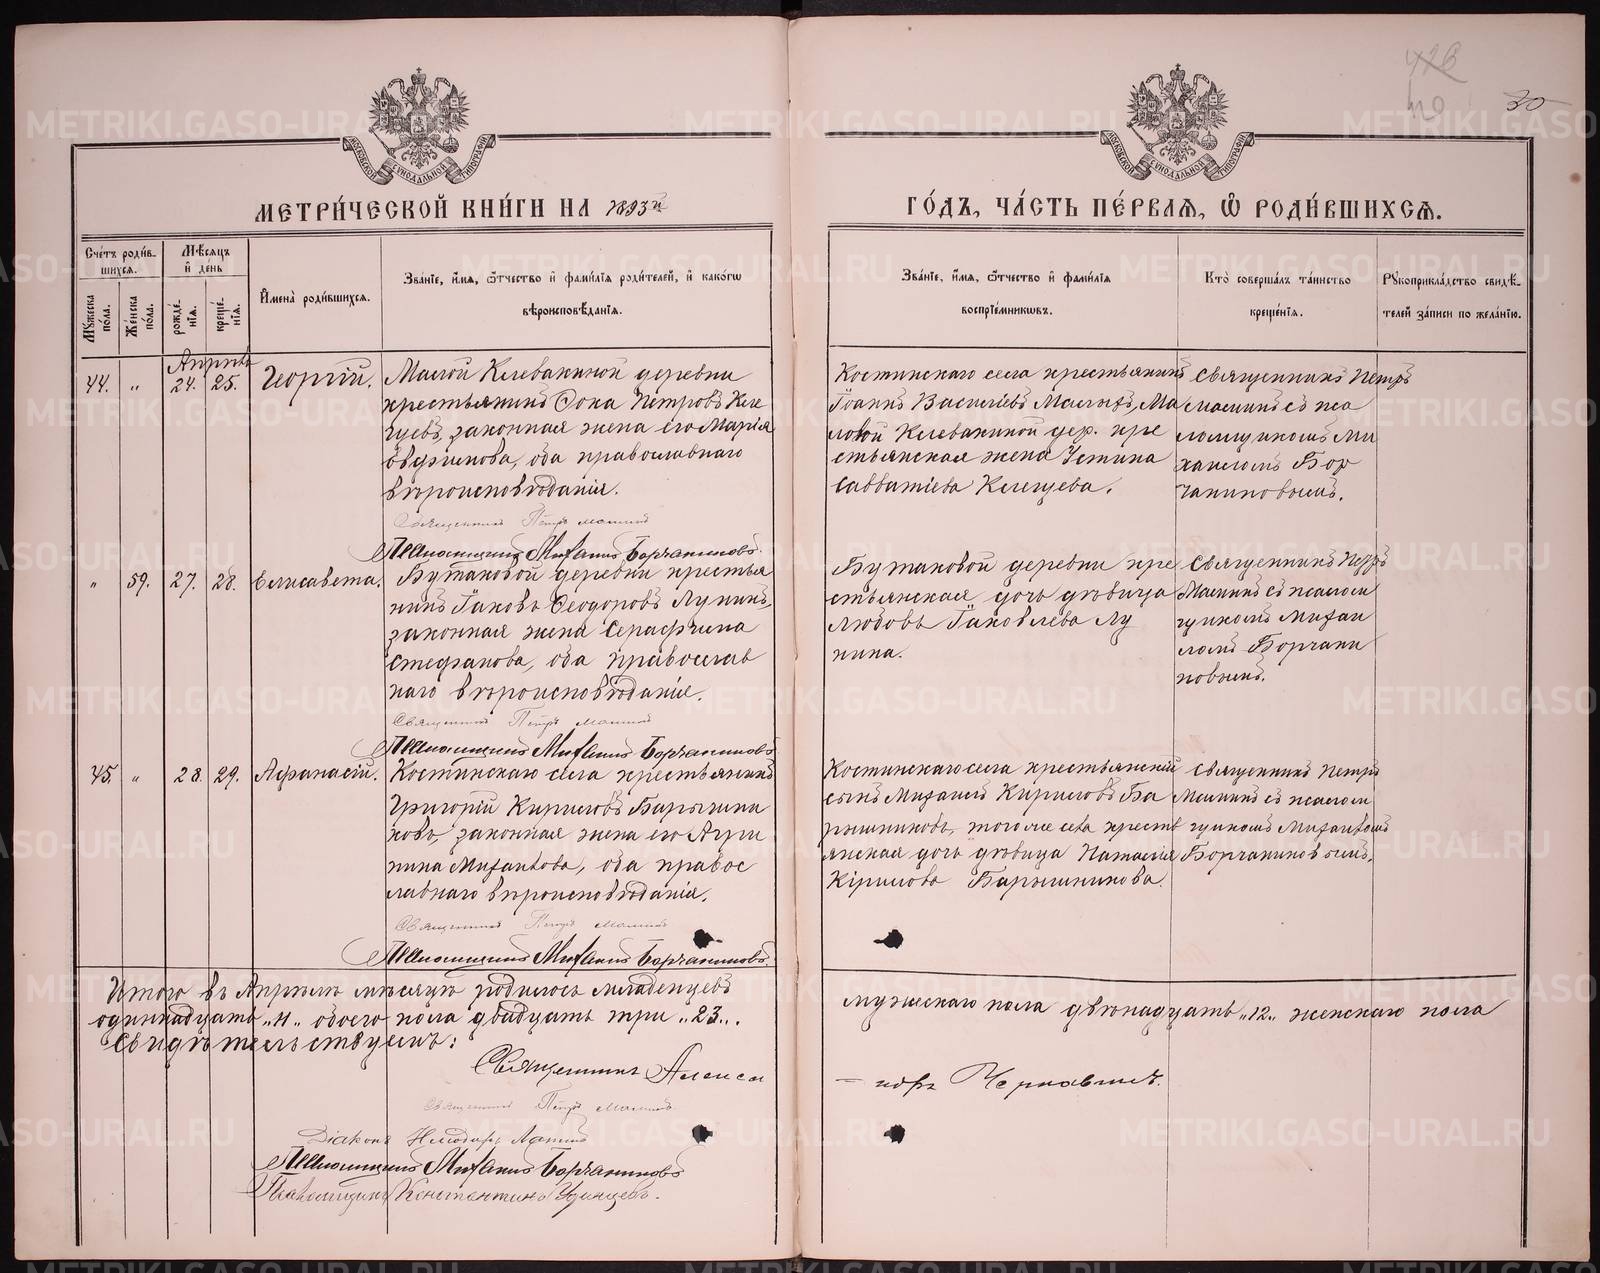 МЕТРИ́ЧЕСКОЙ КНИ́ГИ НА 1893й
ГО́ДЪ, ЧА́СТЬ ПЕ́РВАѦ, Ѽ РОДИ́ВШИХСѦ.
МОСКОВСКОЙ СѴНОДАЛЬНОЙ ТИПОГРАФІИ
МОСКОВСКОЙ СѴНОДАЛЬНОЙ ТИПОГРАФІИ
30
Сче́тъ роди́в-
шихсѧ.
Мꙋ́жеска по́ла.
Же́нска по́ла.
Мѣ́сѧцъ
и҆ де́нь
рожде́-нїѧ.
креще́-нїѧ.
И҆мена̀ роди́вшихсѧ.
Зва́нїе, и҆́мѧ, ѻ҆́тчество и҆ фами́лїѧ роди́телей, и҆ како́гѡ
вѣроисповѣ́данїѧ.
Зва́нїе, и҆́мѧ, ѻ҆́тчество и҆ фами́лїѧ
воспрїе́мникѡвъ.
Кто̀ соверша́лъ та́инство
креще́нїѧ.
Рꙋкоприкла́дство свидѣ́-
телей за́писи по жела́нїю.
Апрѣль
44. „ 24. 25. Георгій.
Малой Клевакиной деревни
крестьянинъ Ѳока Петровъ Клевцевъ, законная жена его Марія
Евфимова, оба православнаго
вѣроисповѣданія.
Священникъ Петръ
Псаломщикъ Михаилъ Борчаниновъ.
Костинскаго села крестьянинъ
Іоаннъ Василіевъ Ма
лой Клевакиной дер. кре
стьянская жена Устина
Савватіева
Священникъ Петръ
съ пса
ломщикомъ Ми
хаиломъ Бор
чаниновымъ.
„ 59. 27. 28. Елисавета.
Бутаковой деревни крестья
нинъ Іаковъ Ѳеодоровъ Лупинъ,
законная жена Серафима
Стефанова, оба православ
наго вѣроисповѣданія.
Священникъ Петръ
Псаломщикъ Михаилъ Борчаниновъ
Бутаковой деревни кре
стьянская дочь дѣвица
Любовь Іаковлева Лу
пина.
Священникъ Петръ
съ псалом
щикомъ Михаи
ломъ Борчани
новымъ.
45. „ 28. 29. Аѳанасій.
Костинскаго села крестьянинъ
Григорій Кириловъ Барышни
ковъ, законная жена его Агри
пина Михаилова, оба правос
лавнаго вѣроисповѣданія.
Священникъ Петръ
Псаломщикъ Михаилъ Борчаниновъ.
Костинскаго села крестьянскій
сынъ Михаилъ Кириловъ Ба
рышниковъ, того же села кресть
янская дочь дѣвица
Кірилова Барышникова.
Священникъ Петръ
съ псалом
щикомъ Михаиломъ
Борчаниновымъ.
Итого въ Апрѣлѣ мѣсяцѣ родилось младенцевъ
мужескаго пола двѣнадцать „12„ женскаго пола
одиннадцать „11„ обоего пола двадцать три „23„.
Свидѣтельствуемъ:
Священникъ
Священникъ Петръ
Діаконъ
Псаломщикъ Михаилъ Борчаниновъ
Псаломщикъ Константинъ Удинцевъ.
METRIKI.GASO-URAL.RU